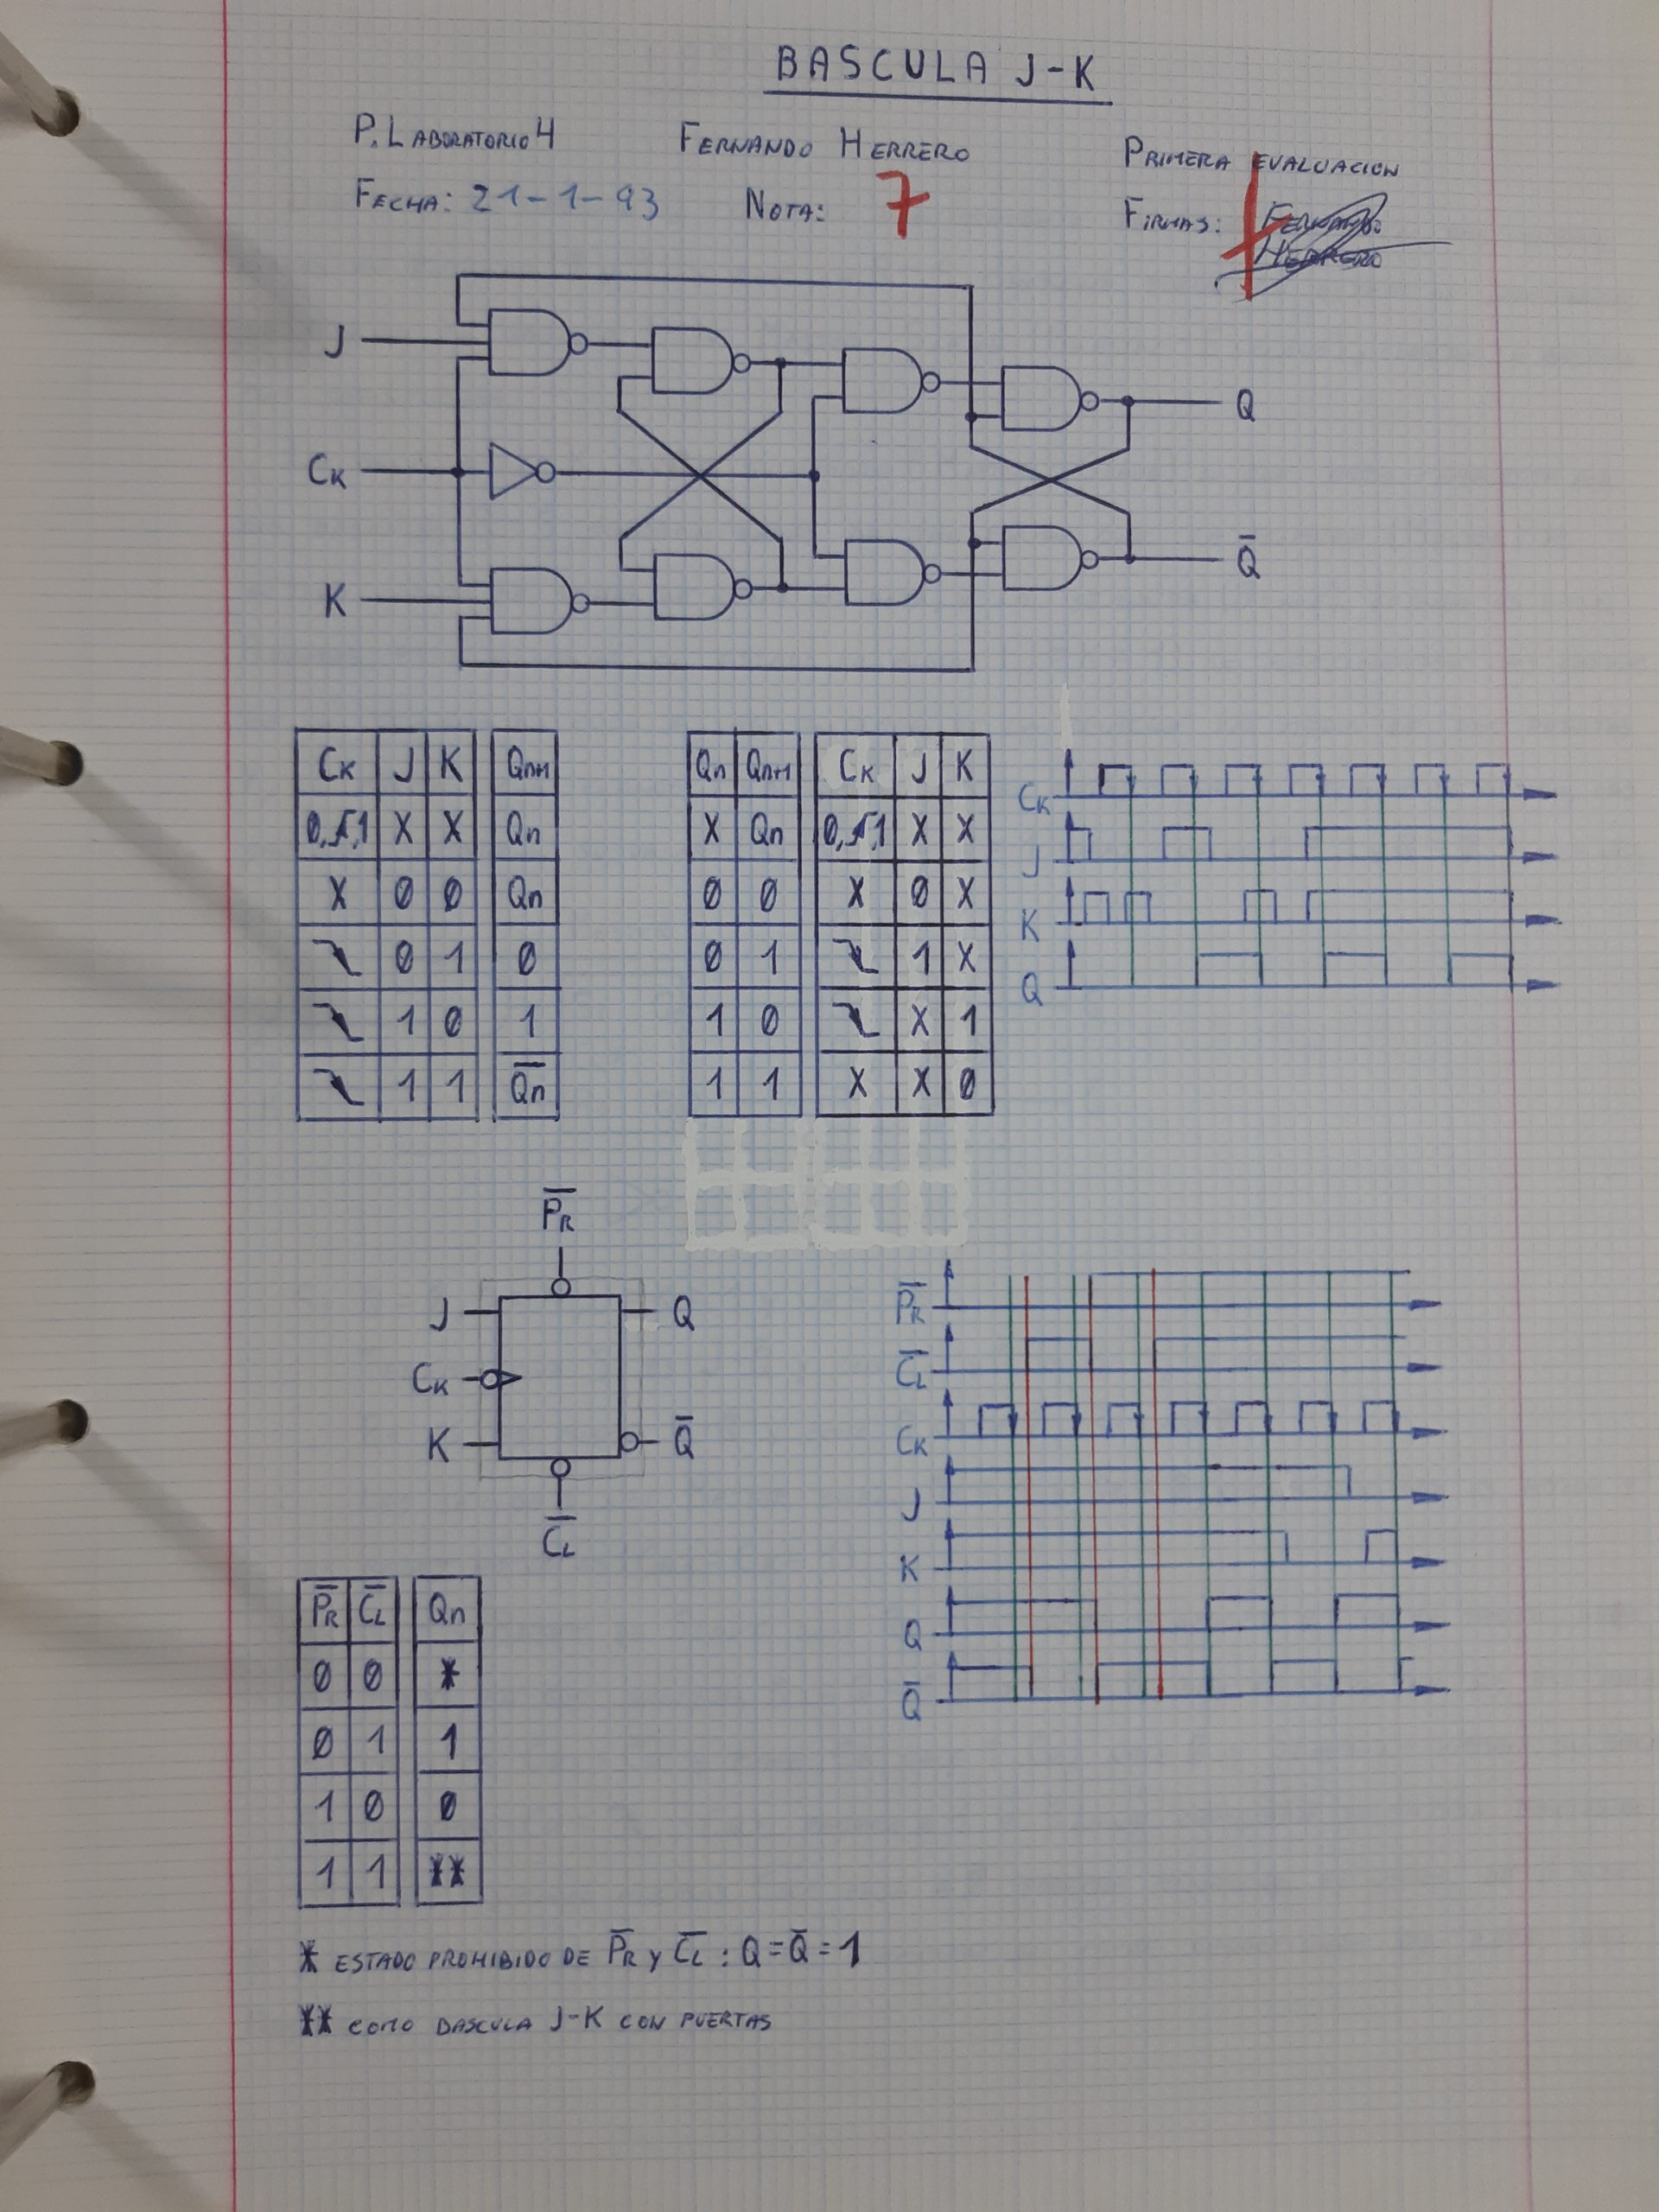 BASCULA J-K
P. LABORATORIO 4 FERNANDO HERRERO PRIMERA EVALUACION
FECHA: 21-1-93 NOTA: 7 FIRMAS: FERNANDO
HERRERO
J
CK
K
Q
Q̅
CK J K Qn+1
0,↑,1 X X Qn
X 0 0 Qn
↓ 0 1 0
↓ 1 0 1
↓ 1 1 Q̅n
Qn Qn+1 CK J K
X Qn 0,↑,1 X X
0 0 X 0 X
0 1 ↓ 1 X
1 0 ↓ X 1
1 1 X X 0
CK
J
K
Q
P̅R
J Q
CK
K Q̅
C̅L
P̅R
C̅L
CK
J
K
Q
Q̅
P̅R C̅L Qn
0 0 *
0 1 1
1 0 0
1 1 **
* ESTADO PROHIBIDO DE P̅R Y C̅L : Q = Q̅ = 1
** COMO BASCULA J-K CON PUERTAS